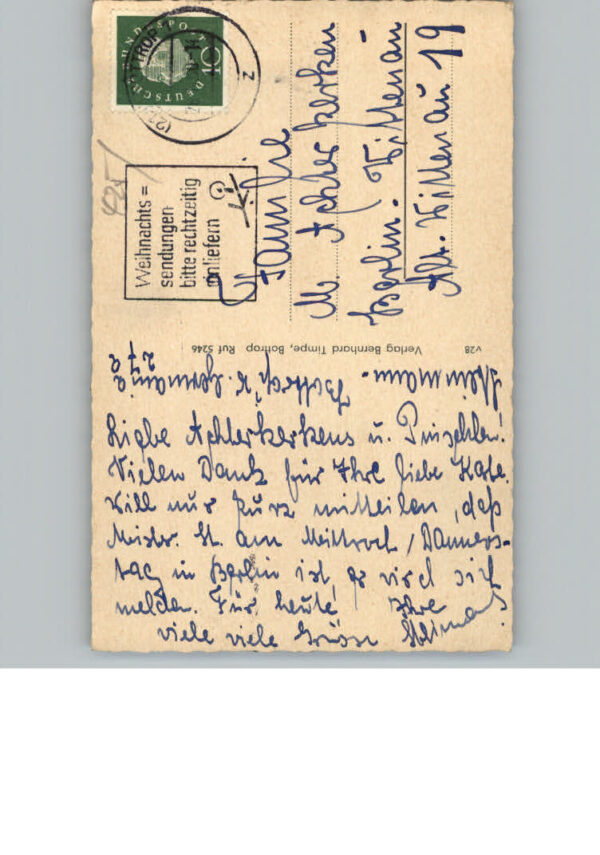 DEUTSCHE BUNDESPOST
10
BOTTROP
Z
Weihnachts=
sendungen
bitte rechtzeitig
einliefern
Familie
M. Achterkerken
Berlin-Wittenau
Alt. Wittenau 19
v28 Verlag Bernhard Timpe, Bottrop Ruf 5246
Bottrop,
27a
Liebe Achterkerkens u.
Vielen Dank für Ihre liebe Karte.
Will nur kurz mitteilen, daß
St. am Mittwoch / Donners-
tag in Berlin ist, er wird sich
melden. Für heute Ihre
viele viele Grüsse